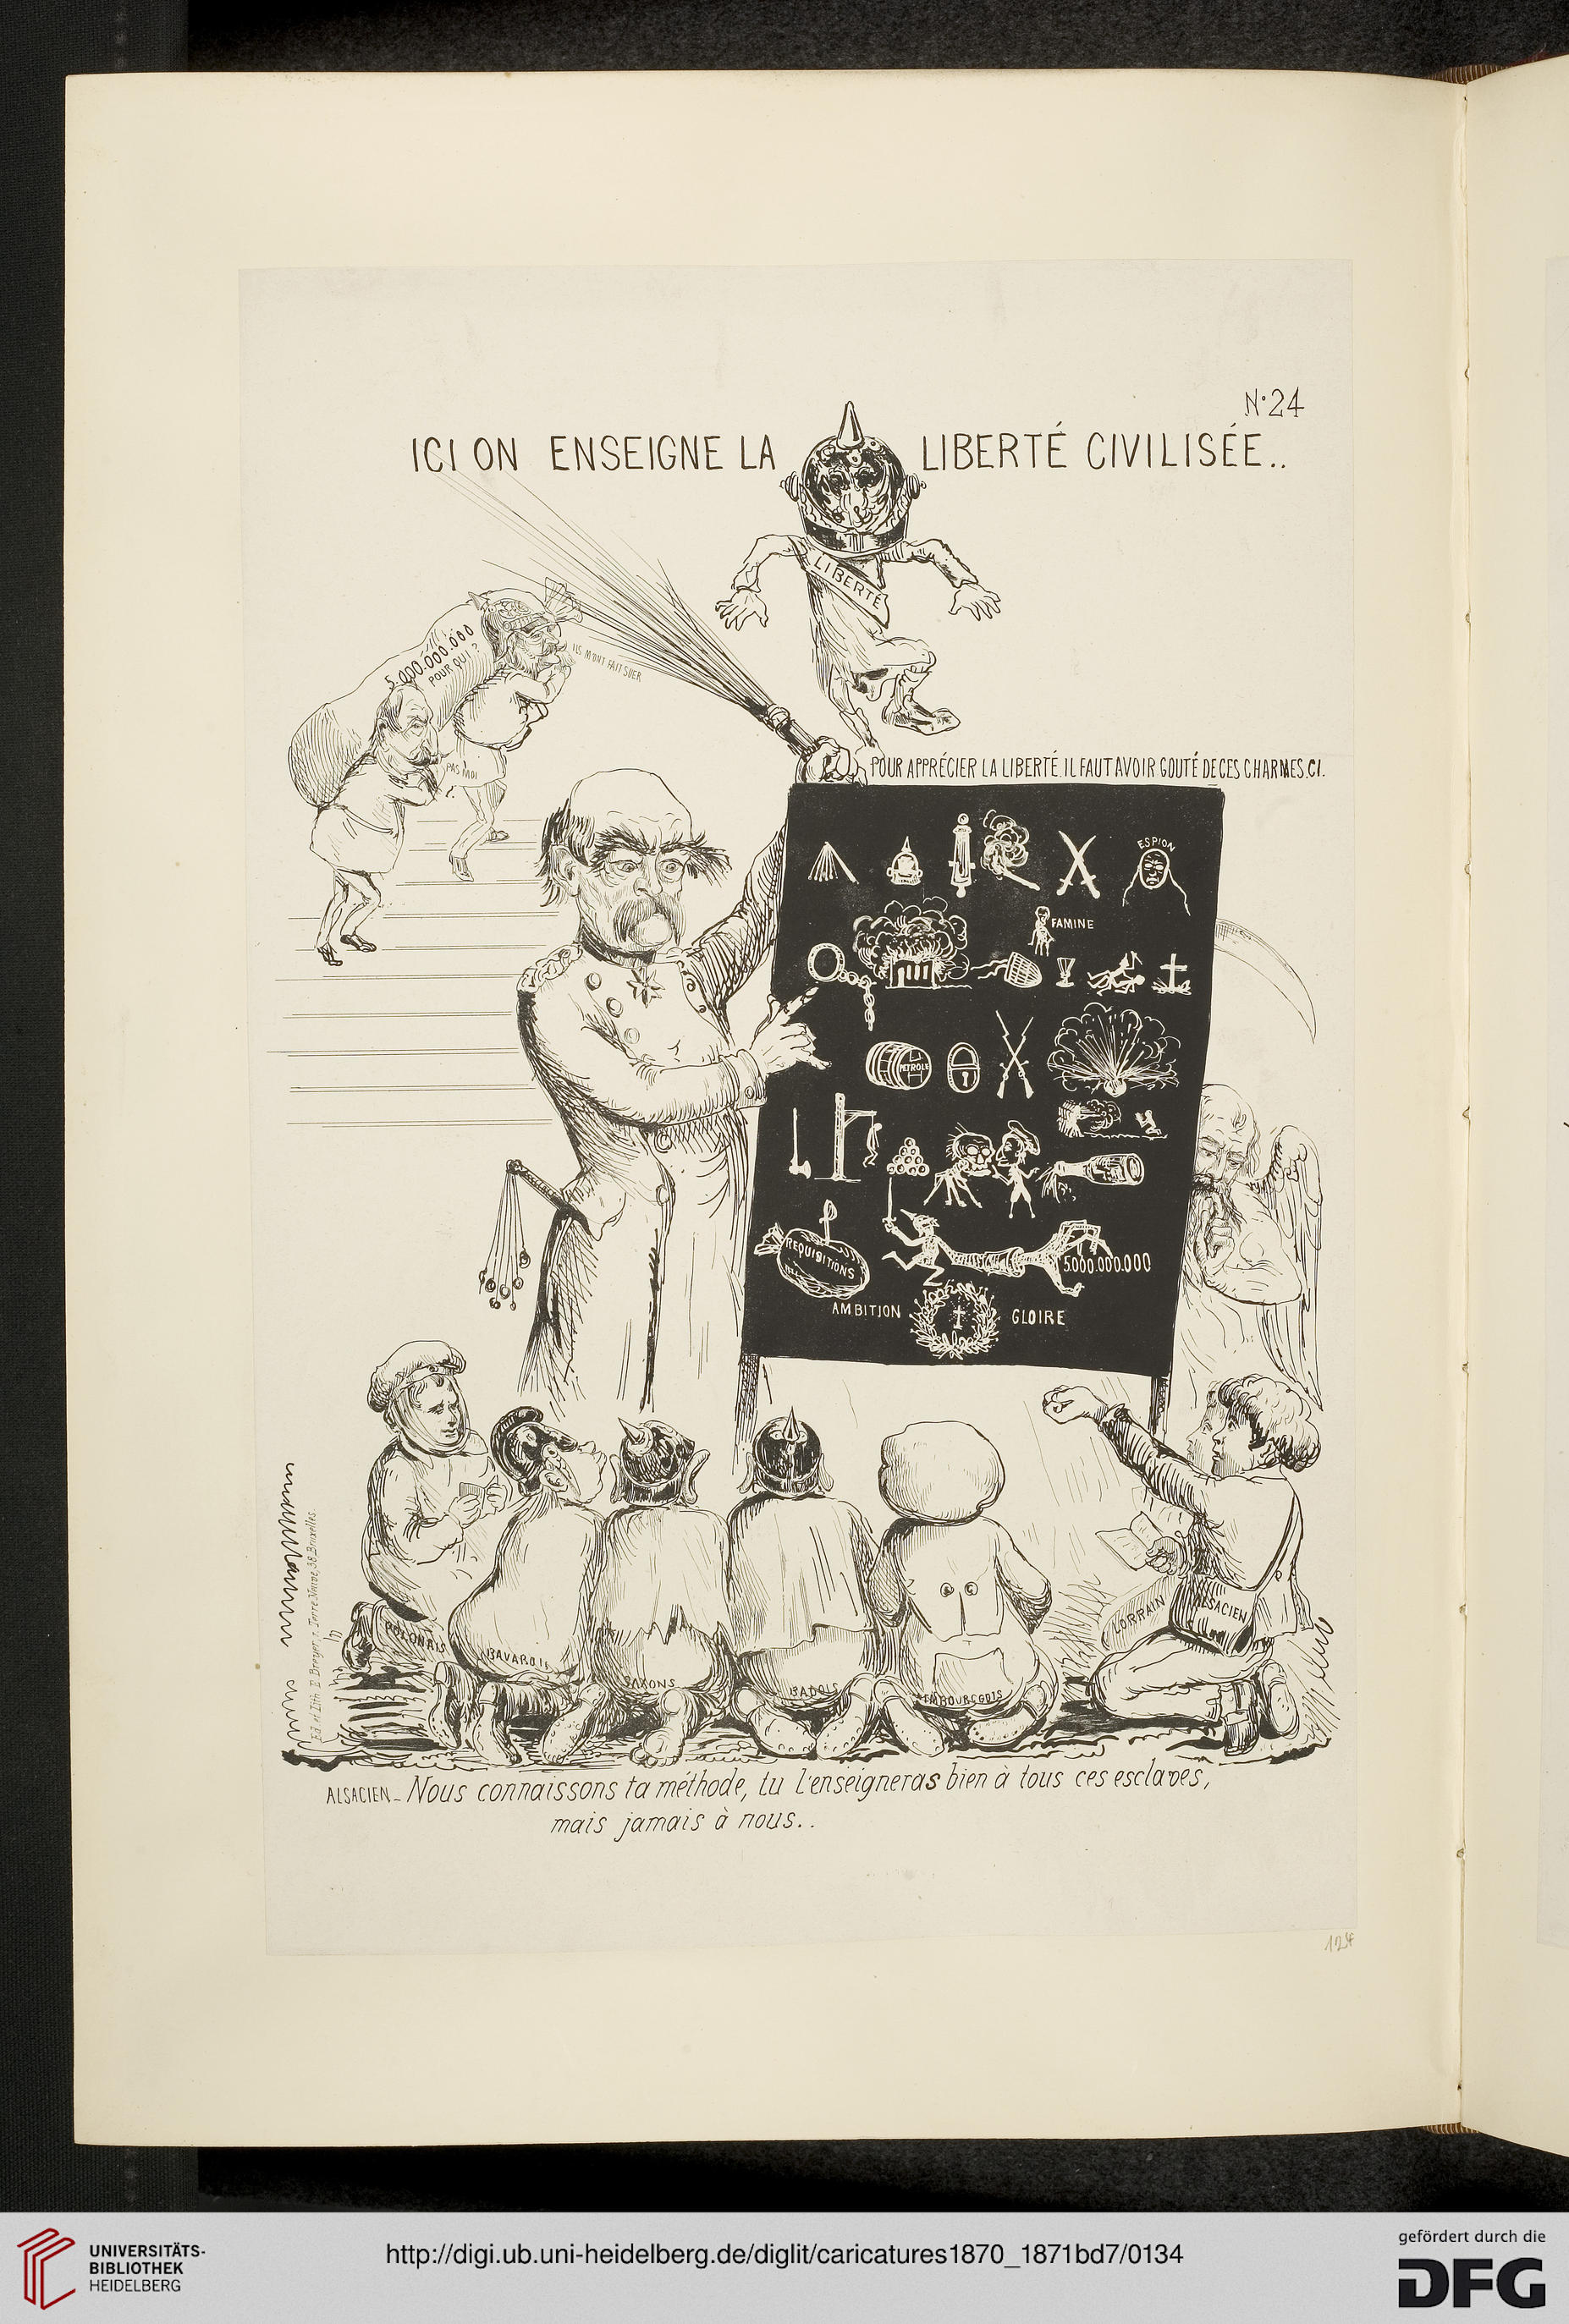 N° 24
ICI ON ENSEIGNE LA LIBERTÉ CIVILISÉE..
LIBERTÉ
5.000.000.000
POUR QUI ?
ILS M'ONT FAIT SUER
PAS MOI
POUR APPRÉCIER LA LIBERTÉ. IL FAUT AVOIR GOUTÉ DE CES CHARMES. CI.
ESPION
FAMINE
PETROLE
REQUISITIONS
5.000.000.000
AMBITION
GLOIRE
POLONAIS
BAVAROIS
SAXONS
BADOIS
LORRAIN
ALSACIEN
Ed. et Lith. E. Breyer, r. Terre Neuve, 38. Bruxelles.
ALSACIEN - Nous connaissons ta méthode, tu l'enseigneras bien à tous ces esclaves,
mais jamais à nous..
124
UNIVERSITÄTS-
BIBLIOTHEK
HEIDELBERG
http://digi.ub.uni-heidelberg.de/diglit/caricatures1870_1871bd7/0134
gefördert durch die
DFG